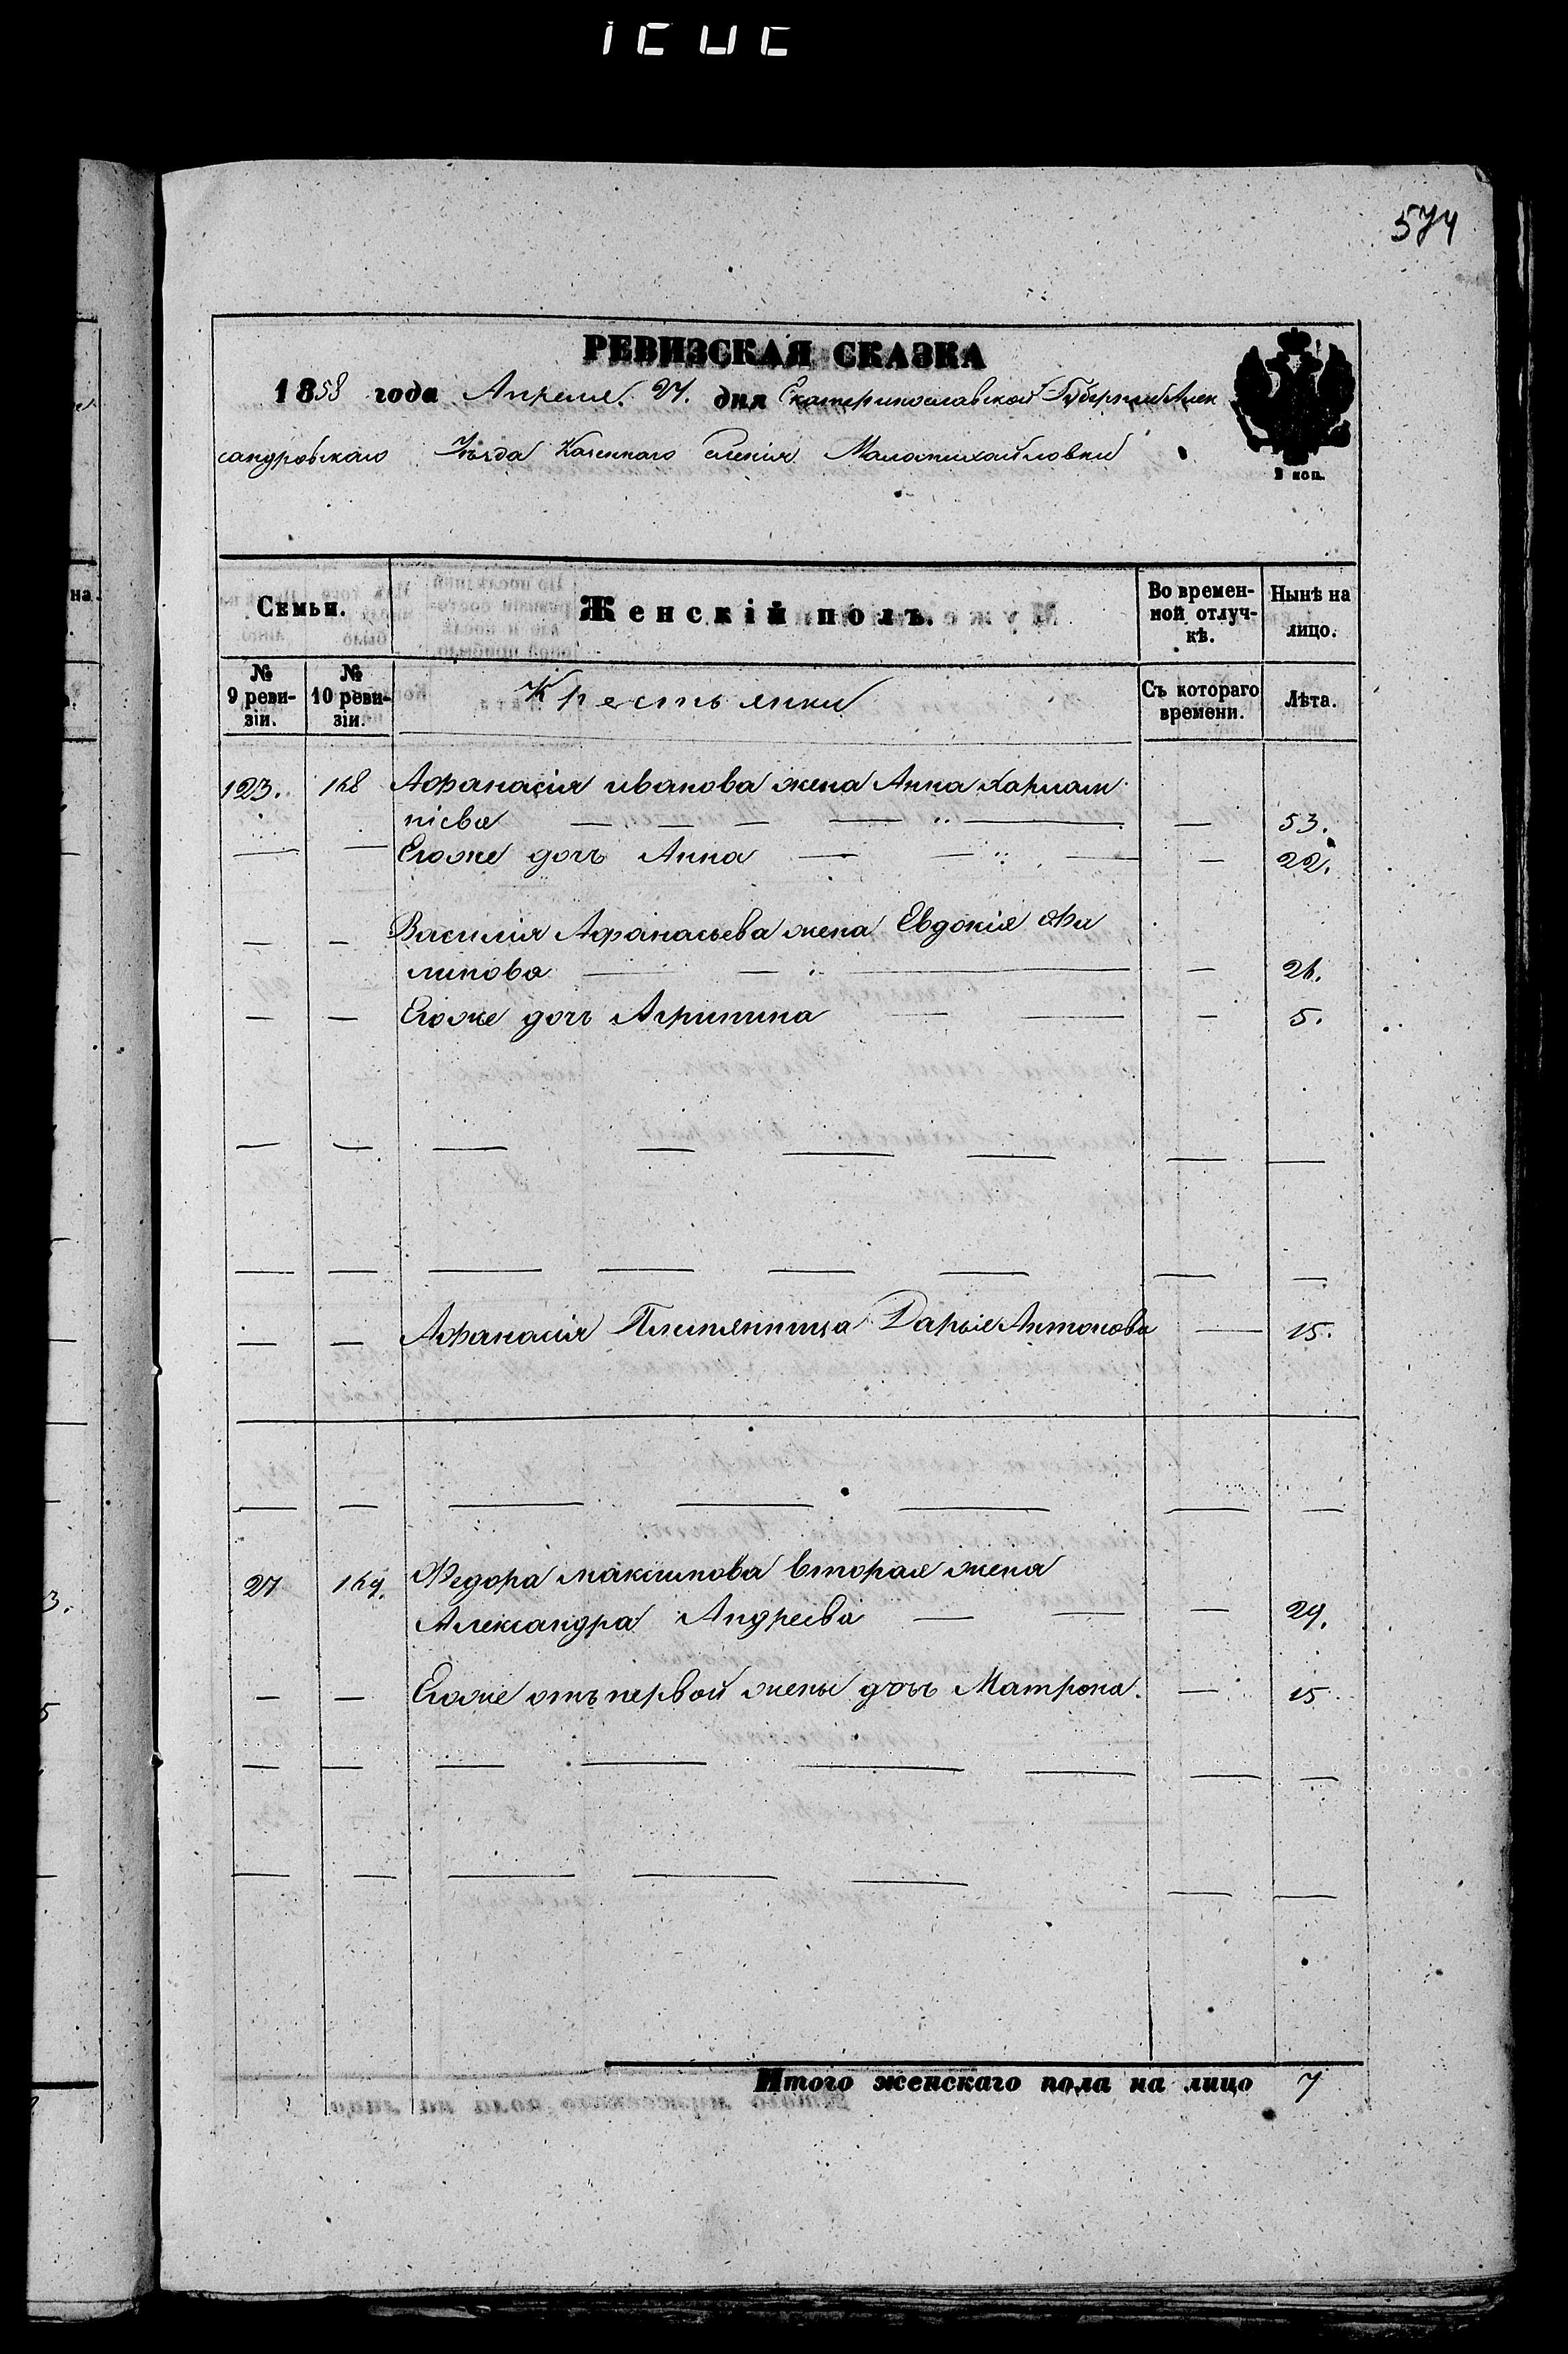 574
РЕВИЗСКАЯ СКАЗКА
1858 года Апреля 27. дня Екатеринославской Губернии Алек
сандровскаго Уѣзда Казеннаго Селенія Маломихайловки
2 коп.
Семьи. Женскій полъ. Во времен- Нынѣ на
ной отлуч- лицо.
кѣ.
№ № Крестьянки Съ котораго Лѣта.
9 реви- 10 реви- времени.
зіи. зіи.
123. 168 Афанасія иванова жена Анна Харлам
піева — — — — — — 53.
— — Егоже дочь Анна — — — — 22.
— — Василія Афанасьева жена Евдокія Фи
липова — — — — 26.
— — Егоже дочь Агрипина — — — 5.
— — Афанасія Племянница Дарья Антонова — 15.
27 169. Федора максимова вторая жена
Александра Андреева — — — 29.
— — Егоже отъ первой жены дочь Матрона. — 15
Итого женскаго пола на лицо 7